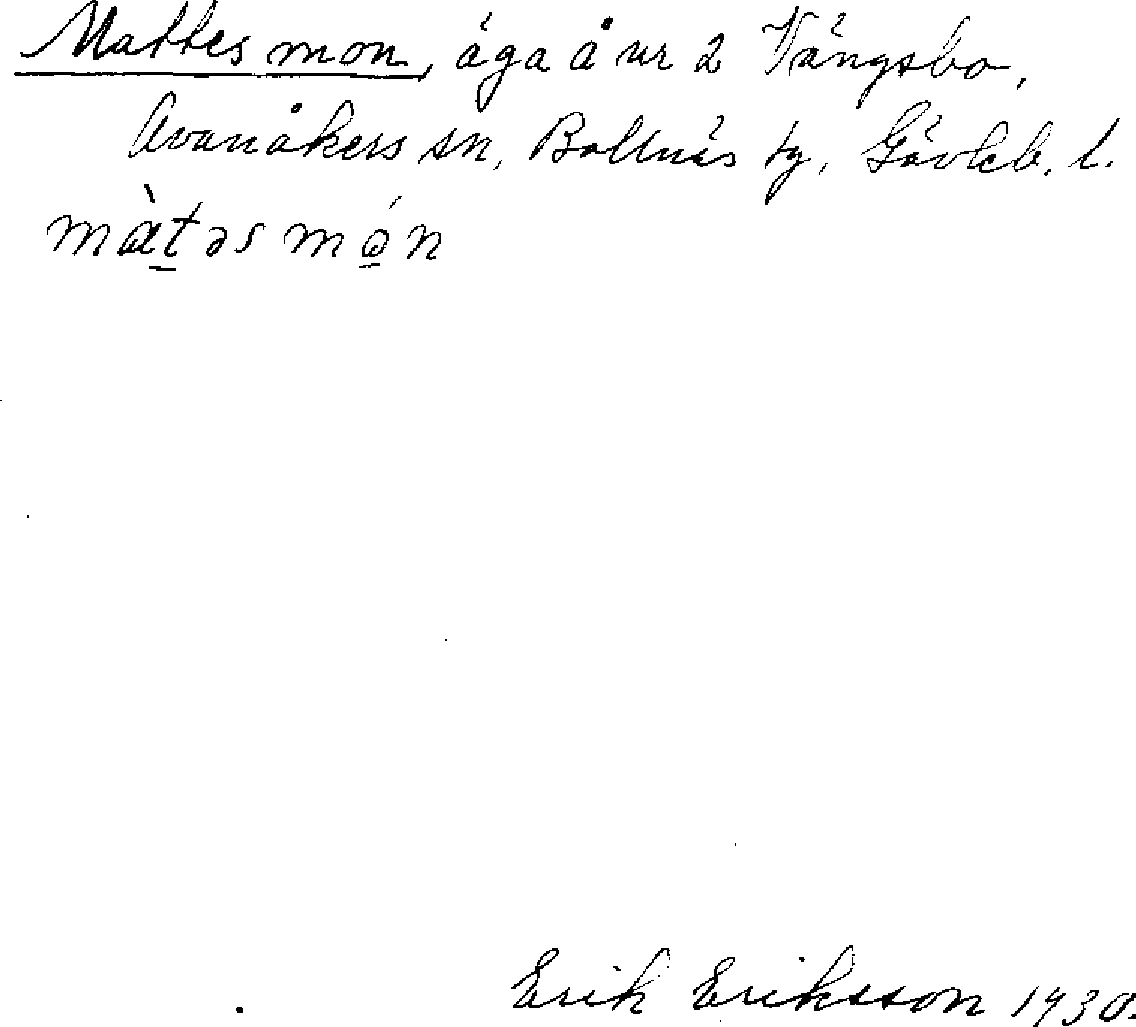 Mattes mon, äga å nr 2 Vängsbo,
Alvanåkers sn, Bollnäs tg, Gävleb. l.
màtəs món
Erik Eriksson 1930.